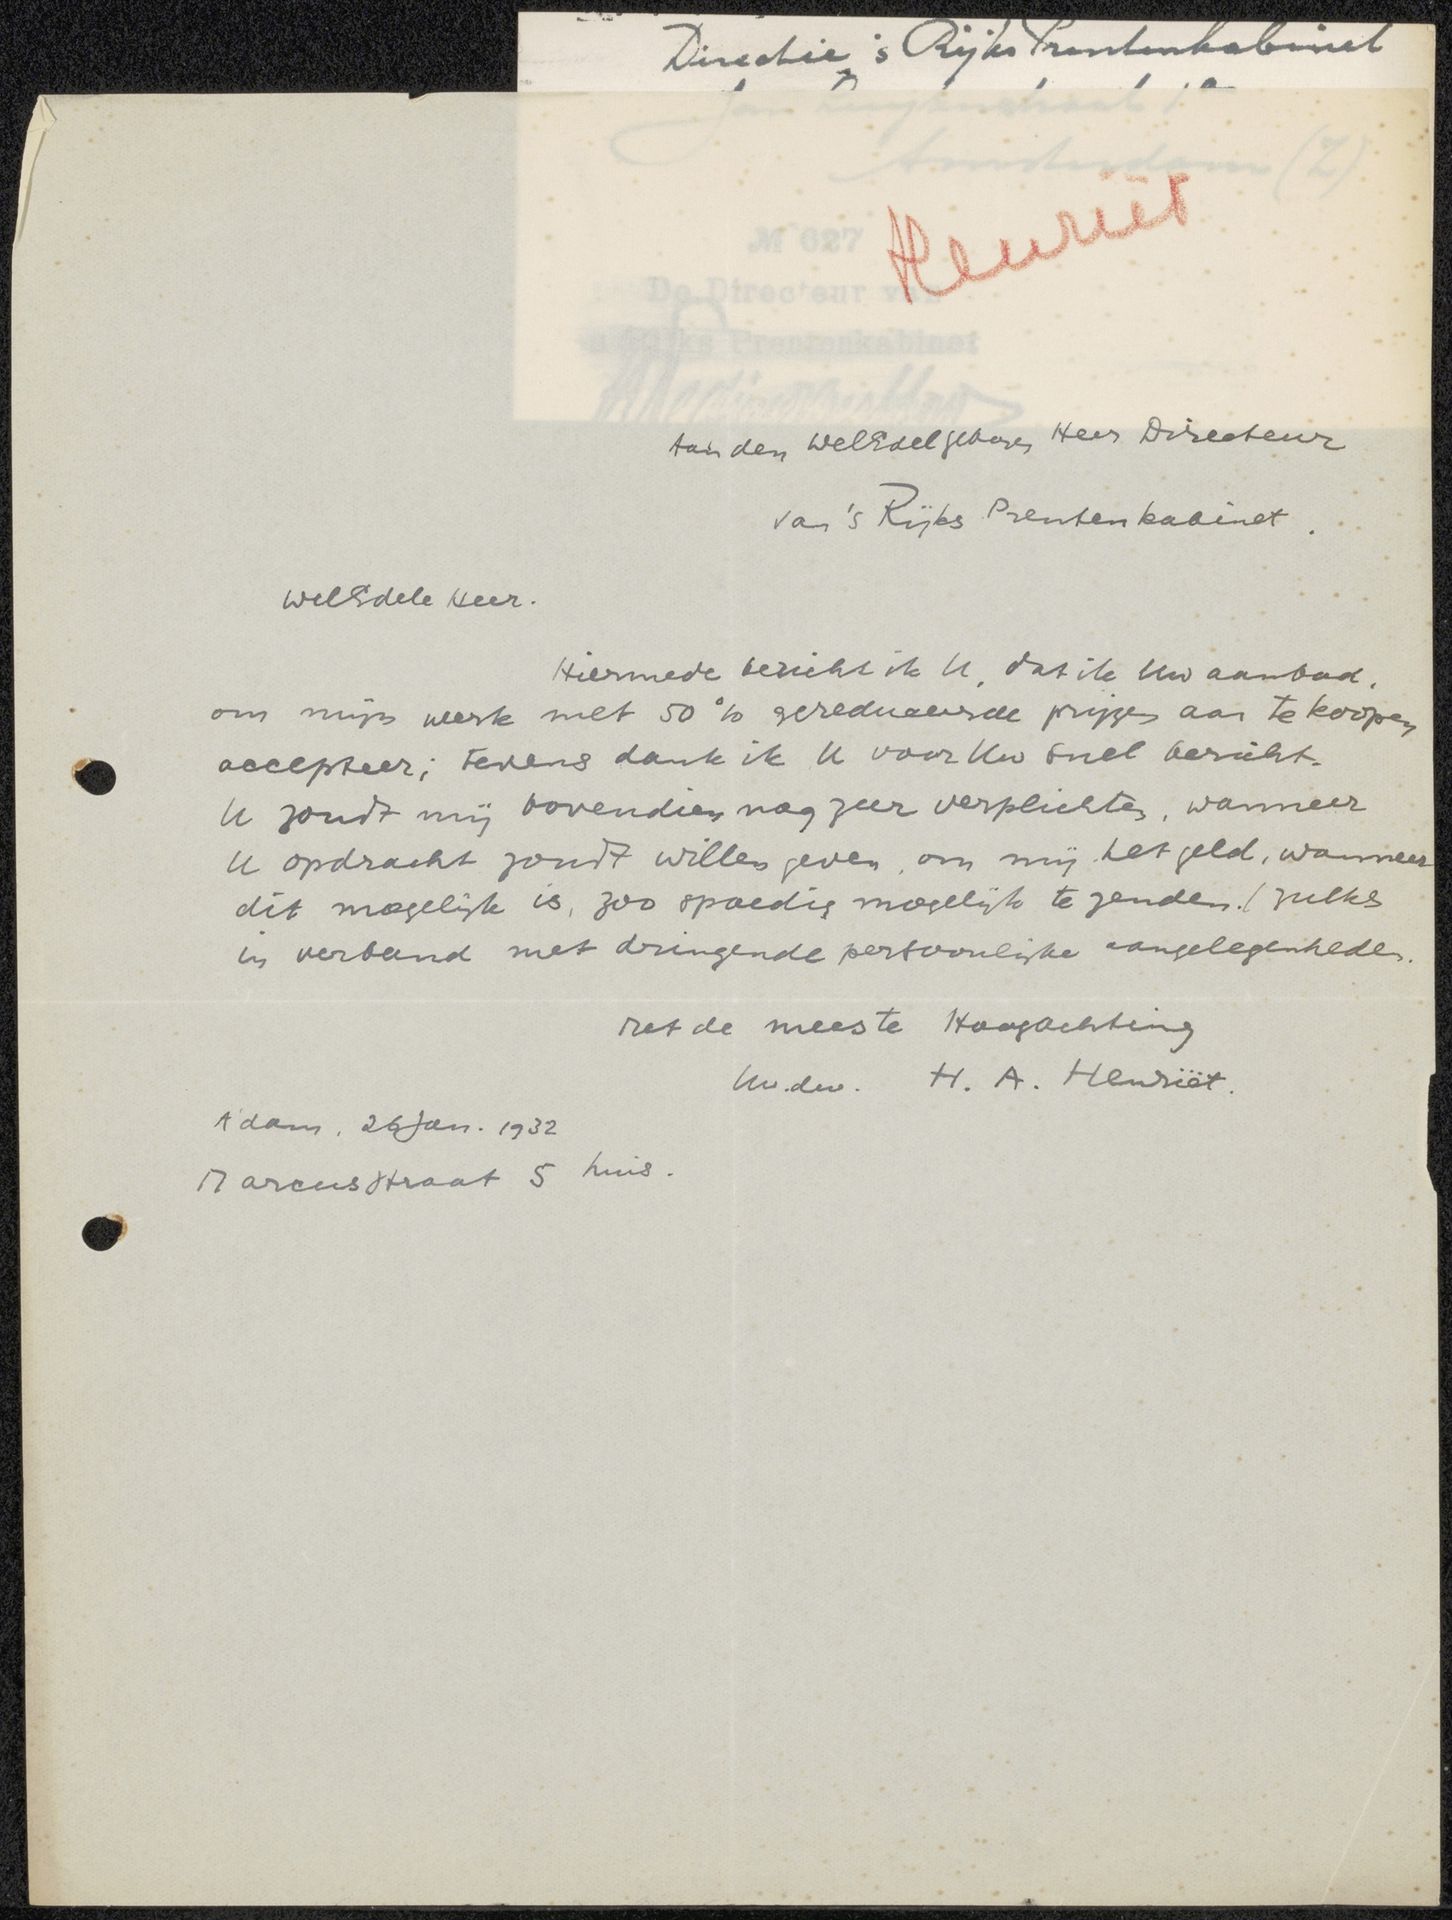 Directie 's Rijks Prentenkabinet
Amsterdam (Z)
№ 627
De Directeur van
's Rijks Prentenkabinet
Henriët
Aan den WelEdelgeboren Heer Directeur
van 's Rijks Prentenkabinet.
WelEdele Heer.
Hiermede bericht ik U, dat ik Uw aanbod,
om mijn werk met 50% gereduceerde prijzen aan te koopen
accepteer; tevens dank ik U voor Uw snel bericht.
U zoudt mij bovendien nog zeer verplichten, wanneer
U opdracht zoudt willen geven, om mij het geld, wanneer
dit mogelijk is, zoo spoedig mogelijk te zenden. / zulks
in verband met dringende persoonlijke aangelegenheden.
Met de meeste Hoogachting
Uw. dw. H. A. Henriët.
A'dam, 26 Jan. 1932
Marcusstraat 5 huis.